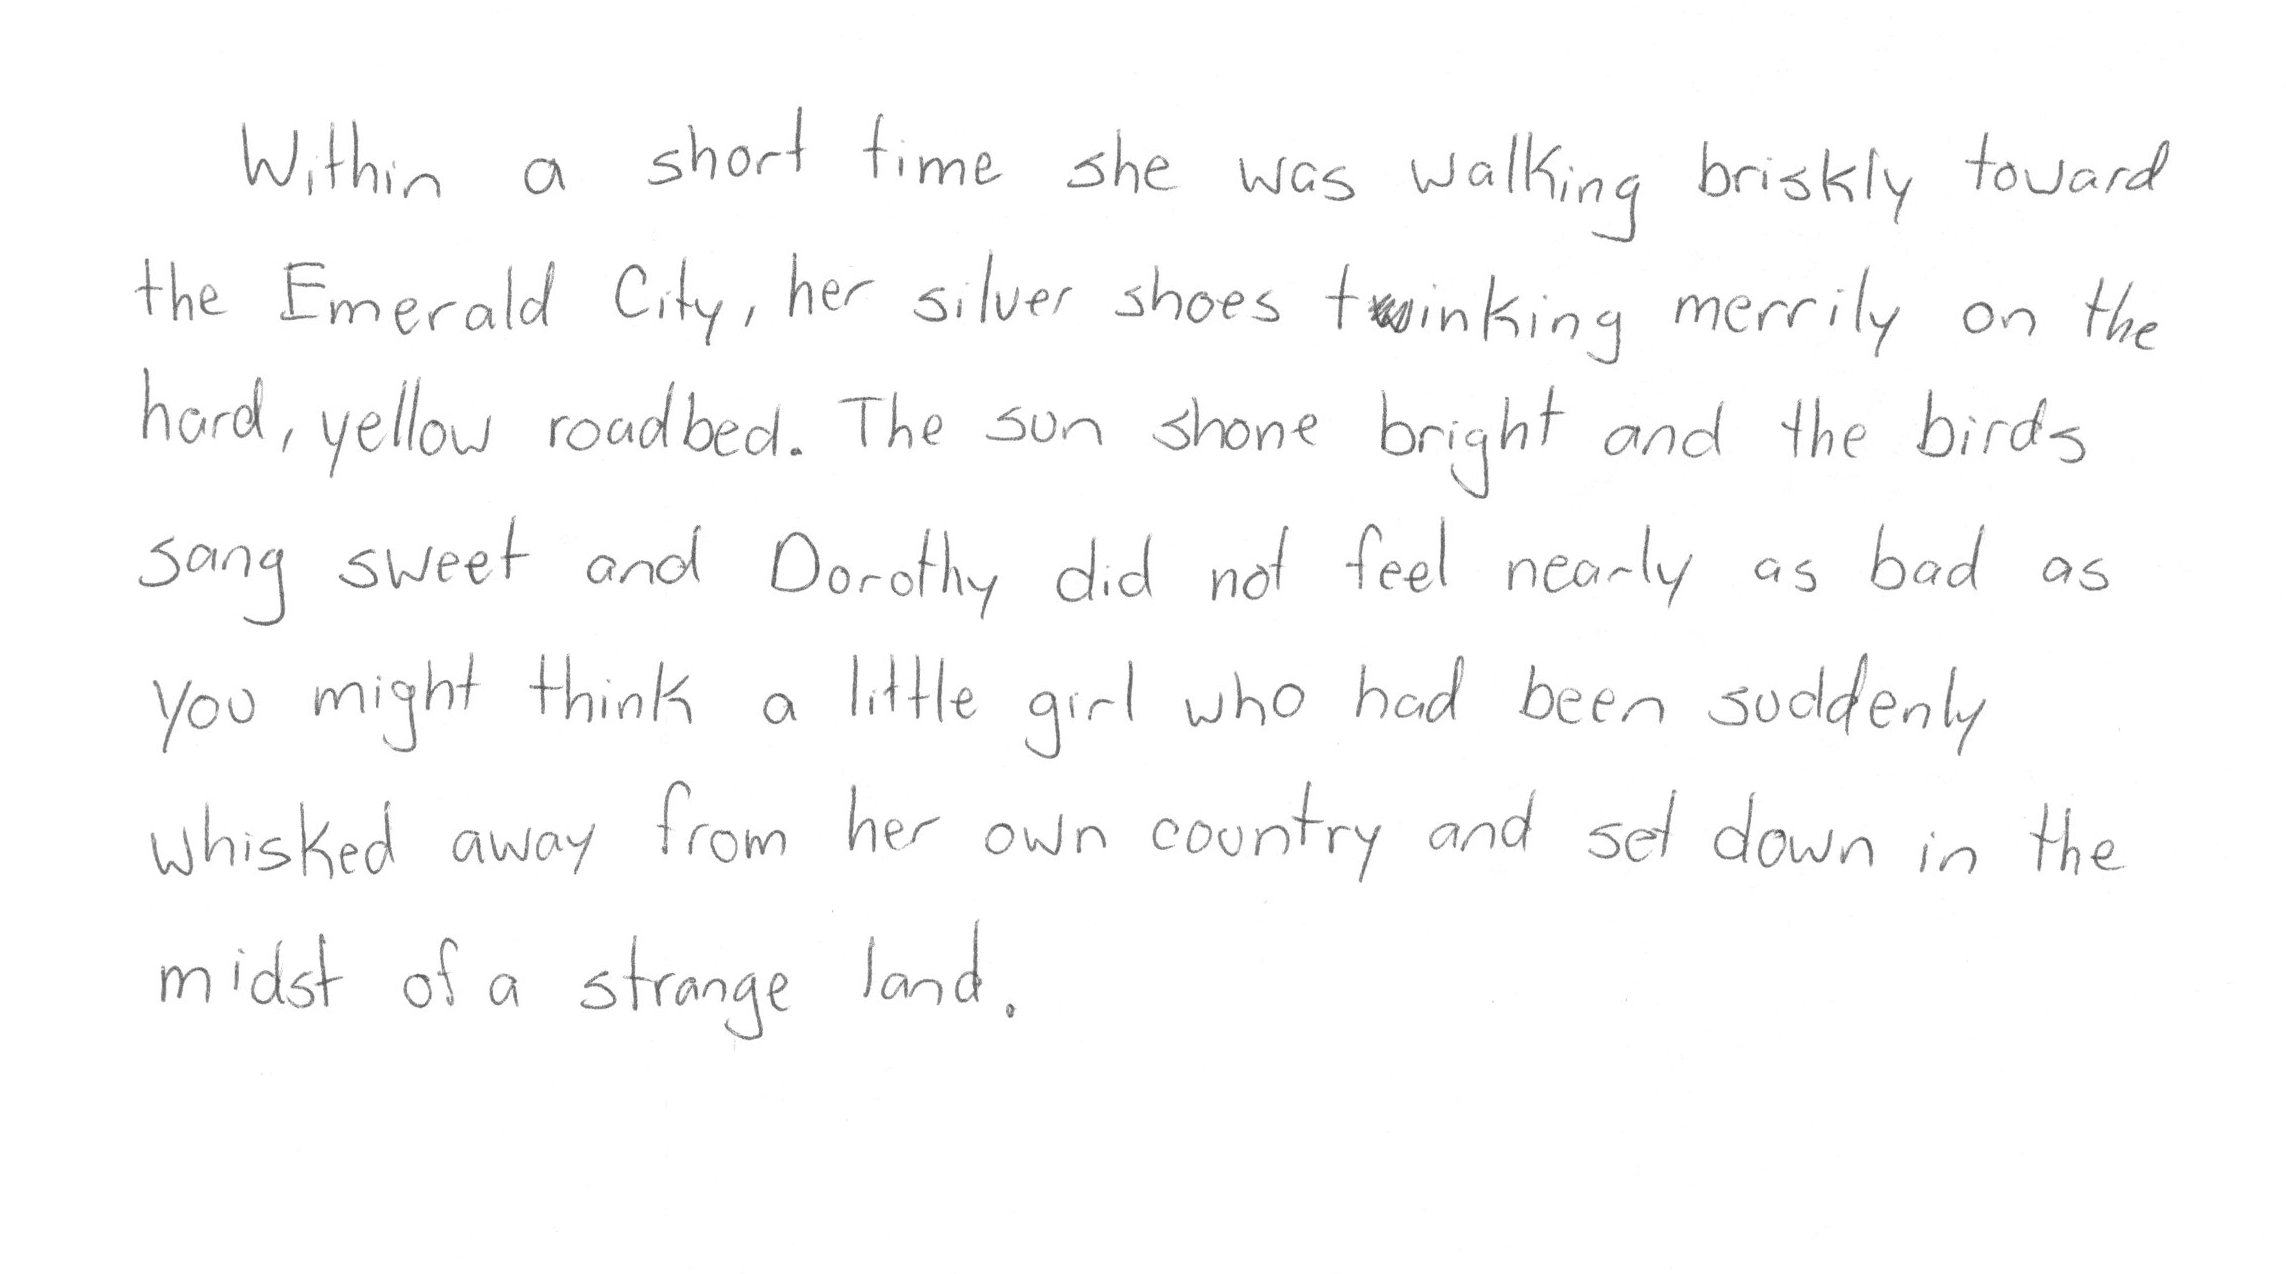 Within a short time she was walking briskly toward
the Emerald City, her silver shoes twinking merrily on the
hard, yellow roadbed. The sun shone bright and the birds
sang sweet and Dorothy did not feel nearly as bad as
you might think a little girl who had been suddenly
whisked away from her own country and set down in the
midst of a strange land.